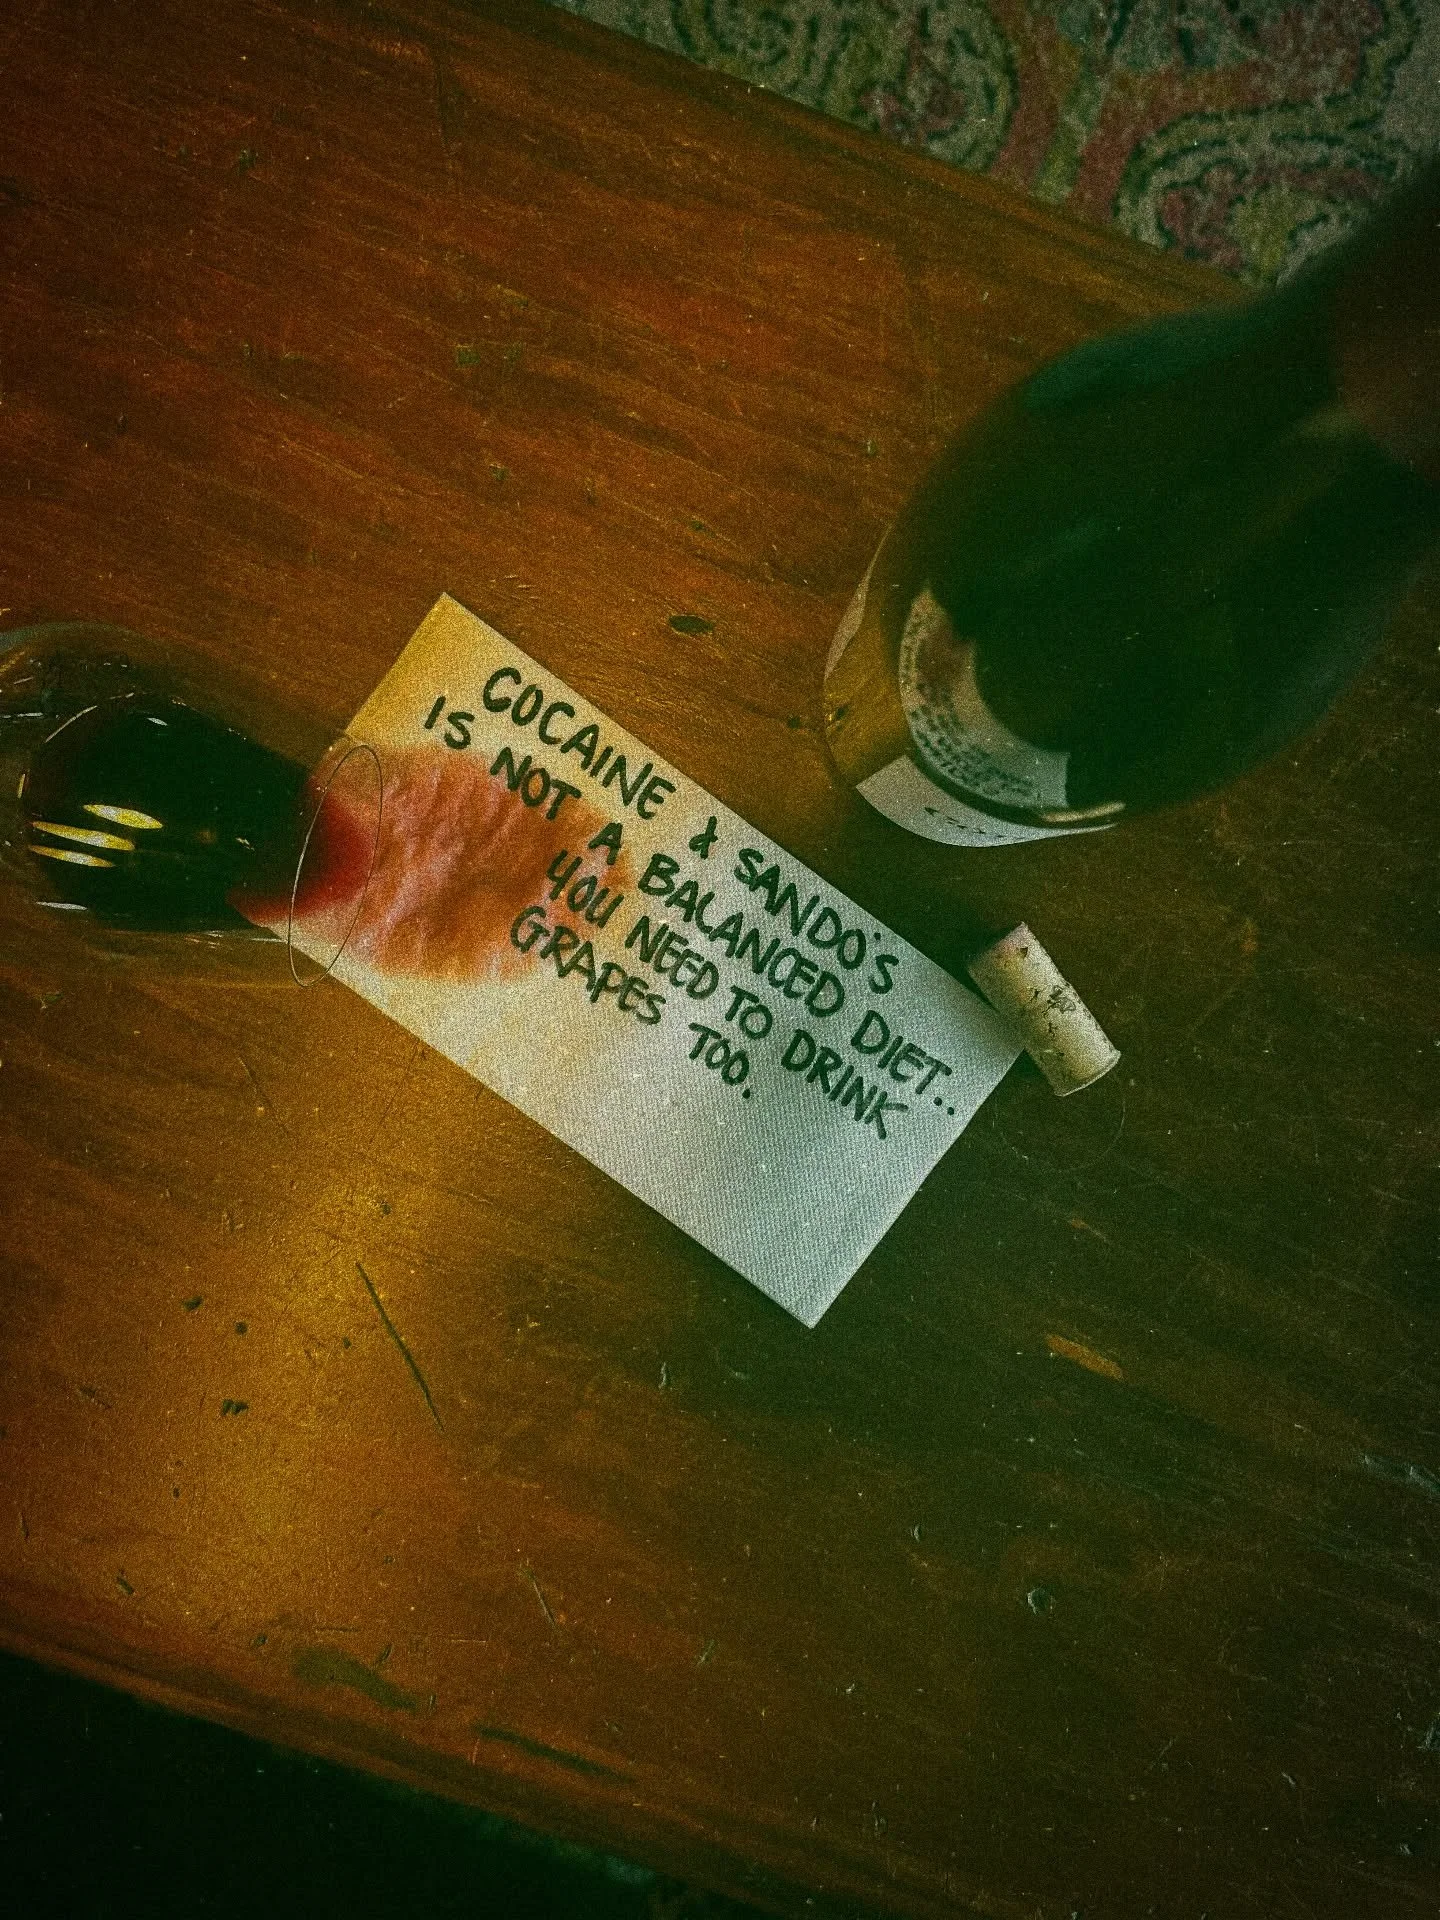 COCAINE & SANDO'S
IS NOT A BALANCED DIET..
YOU NEED TO DRINK
GRAPES TOO.